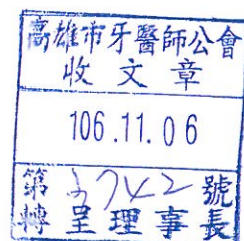 高雄市牙醫師公會
收文章
106.11.06
第3742號
轉呈理事長